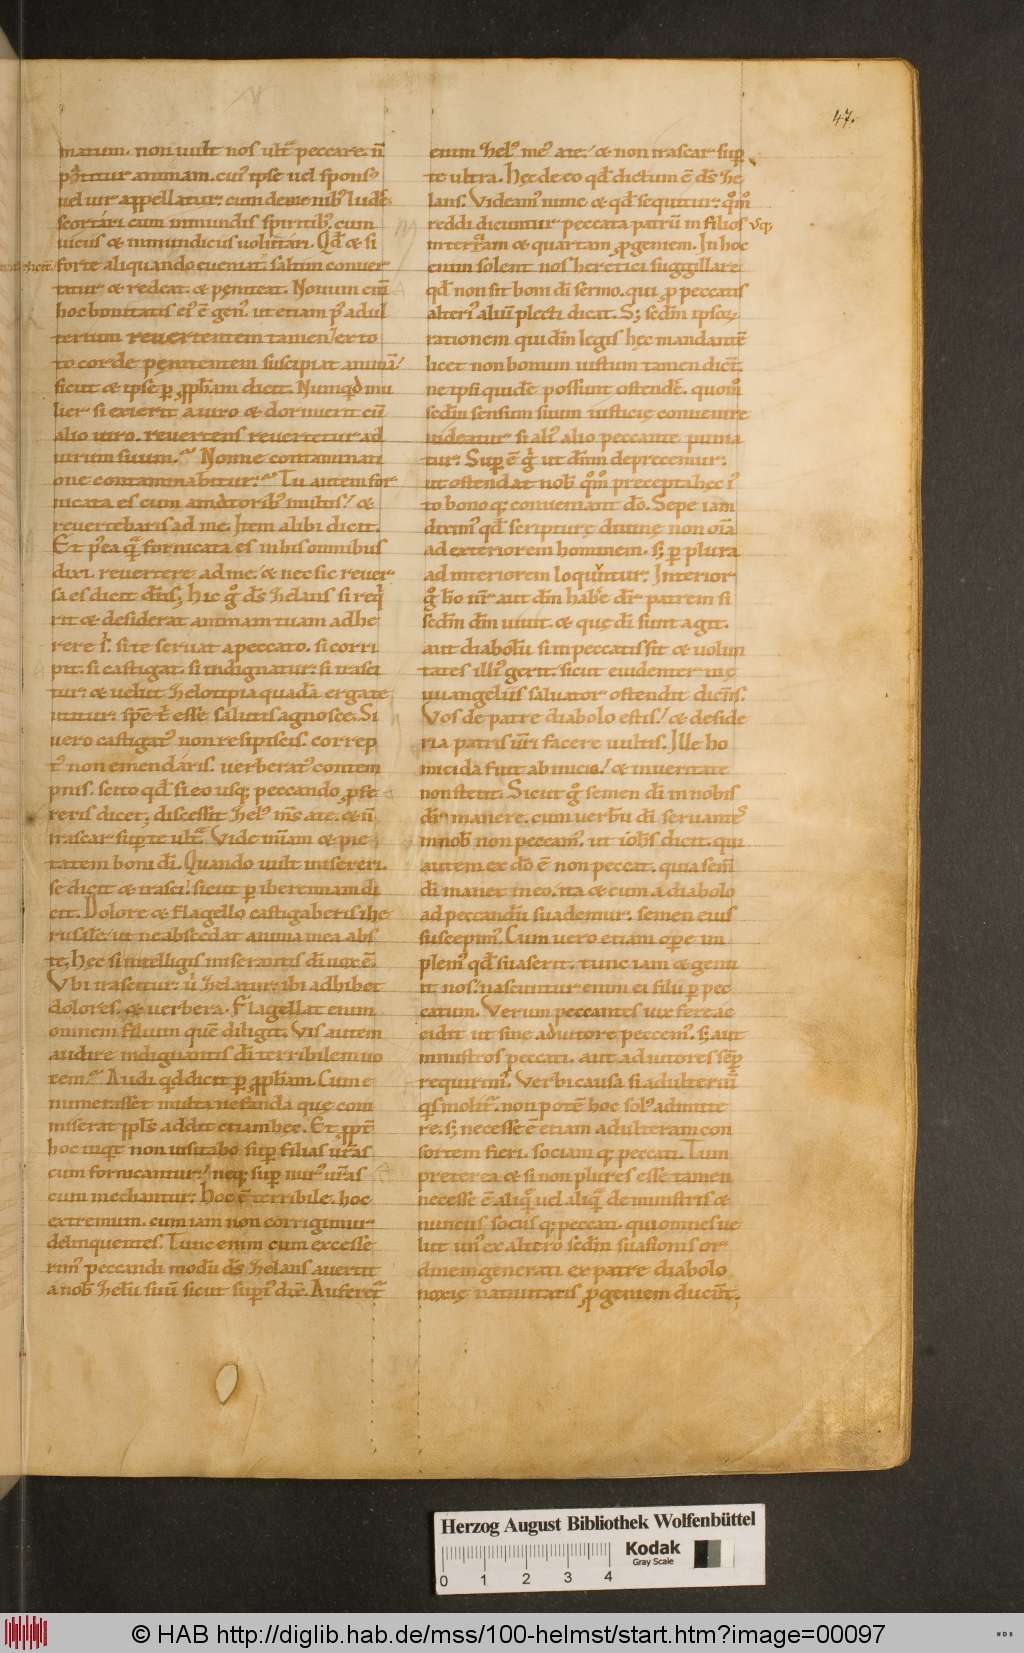 47.
matum. non uult nos ult̄ peccare. n̄
p̄mittitur animam. cui᾽ ipse uel spons᾽
uel uir appellatur. cum demonib᾽ luđe.
scortari cum inmundis spiritib᾽. cum
uiciis & inmundiciis uolutari. Qđ & si
forte aliquando eueniat. saltim conuer
tatur & redeat. & pęniteat. Nouum eni
hoc bonitatis ei᾽ ē gen᾽. ut etiam p᾽ adul
terium reuertentem tamen & ex to
to corde pęnitentem suscipiat animā.
sicut & ipse ꝑ ꝓph̄am dicit. Nunqd mu
lier si exierit a uiro & dormierit cū
alio uiro. reuertens reuertetur ad
uirum suum. Nonne contaminati
one contaminabitur. Tu autem for
nicata es cum amatorib᾽ multis. &
reuertebaris ad me. Item alibi dicit.
Et p᾽ea q̄ fornicata es in his omnibus
dixi. reuertere ad me. & nec sic reuer
sa es dicit dn̄s. hic g̊ dš zelans si req̇
rit & desiderat animam tuam adhe
rere s̄. si te seruat a peccato. si corri
pit. si castigat. si indignatur. si irasci
tur. & uelut zelotipia quadā erga te
utitur. spē t̄ esse salutis agnosce. Si
uero castigat᾽ non resipiscis. correp
t᾽ non emendaris. uerberat᾽ contem
pnis. scito qđ si eo usq; peccando ꝓfe
reris dicet. discessit zel᾽ m̄s a te. & n̄
irascar sup te ult̄. Vide m̄iam & pie
tatem boni dī. Quando uult misereri.
se dicit & irasci. sicut ꝑ iheremiam di
cit. Dolore & flagello castigaberis ihe
rusalē. ut ne abscedat anima mea abs
te. Hęc si intelligis miserantis dī uox ē.
Vbi irascitur. u᾽ zelatur. ibi adhibet
dolores. & uerbera. Flagellat enim
omnem filium quē diligit. Vis autem
audire indignantis dī terribilem uo
cem. Audi qd dicit ꝑ ꝓph̄am. Cum e
numerasset multa nefanda que com
miserat ppls̄ addit etiam hec. Et ꝓpt̄
hoc inqt non uisitabo sup filias ur̄as
cum fornicantur. neq; sup nur᾽ ur̄as
cum mechantur. Hoc ē terribile. hoc
extremum. cum iam non corrigimur
delinquentes. Tunc enim cum excesse
rim᾽ peccandi modū dš zelans auertit
a nob᾽ zelū suū sicut supi᾽ dix̄. Auferet᾽
enim zel᾽ me᾽ a te. & non irascar sup
te ultra. Hęc de eo qđ dictum ē dš ze
lans. Videam᾽ nunc & qđ sequitur. qm̊
reddi dicuntur peccata patrū in filios usq;
in terciam & quartam ꝓgeniem. In hoc
enim solent nos heretici suggillare
qđ non sit boni dī sermo. qui ꝓ peccatis
alteri᾽ aliū plecti dicit. S; scdm ipsoꝝ
rationem qui dm̄ legis hec mandantē
licet non bonum iustum tamen dicn̄t.
ne ipsi quidē possunt ostendē. quom̊
scdm sensum suum iusticię conuenire
uideatur si ali᾽ alio peccante punia
tur. Sup̄ ē g̊ ut dn̄m deprecemur.
ut ostendat nob᾽ qm̊ precepta hec i᾽
to bono q; conueniant dō. Sepe iam
dixim᾽ qđ scripturę diuinę non oīa
ad exteriorem hominem. s; ꝑ plura
ad interiorem loquuntur. Interior
g̊ ho nr̄ aut dm̄ habē dr̄ patrem si
scdm dm̄ uiuit. & quę dī sunt agit.
aut diabolū si in peccatis sit & uolun
tates illi᾽ gerit. sicut euidenter inę
uuangeliis saluator ostendit dicens.
Vos de patre diabolo estis. & deside
ria patris ur̄i facere uultis. Ille ho
micida fuit ab inicio. & in ueritate
non stetit. Sicut g̊ semen dī in nobis
dr̄ manere. cum uerbū dī seruantes
in nob᾽ non peccam᾽. ut ioh̄s dicit. qui
autem ex dō ē non peccat. quia sem̄
dī manet in eo. ita & cum a diabolo
ad peccandū suademur. semen eius
suscepim᾽. Cum uero etiam opere im
plem᾽ qđ suaserit. tunc iam & genu
it nos. nascuntur enim ei filii ꝑ pec
catum. Verum peccantes uix fere ac
cidit ut sine adiutore peccem᾽. s; aut
ministros peccati. aut adiutores semp
requirim᾽. Verbi causa si adulteriū
qs molit᾽. non potē hoc sol᾽ admitte
re. s; necesse ē etiam adulteram con
sortem fieri. sociam q; peccati. Tum
preterea & si non plures esse tamen
necesse ē aliq̊ uel aliq̄ de ministris &
nunciis sociis q; peccati. qui omnes ue
lut un᾽ ex altero scdm suasionis or
dinem generati ex patre diabolo
noxię natiuitatis ꝓgeniem ducunt.
Herzog August Bibliothek Wolfenbüttel
Kodak
Gray Scale
0 1 2 3 4
© HAB http://diglib.hab.de/mss/100-helmst/start.htm?image=00097